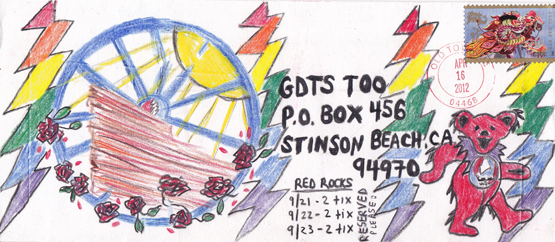 OLD TO
APR
16
2012
04468
GDTS TOO
P.O. BOX 456
STINSON BEACH, CA
94970
RED ROCKS
9/21 - 2 tix
9/22 - 2 tix
9/23 - 2 tix
RESERVED
PLEASE!